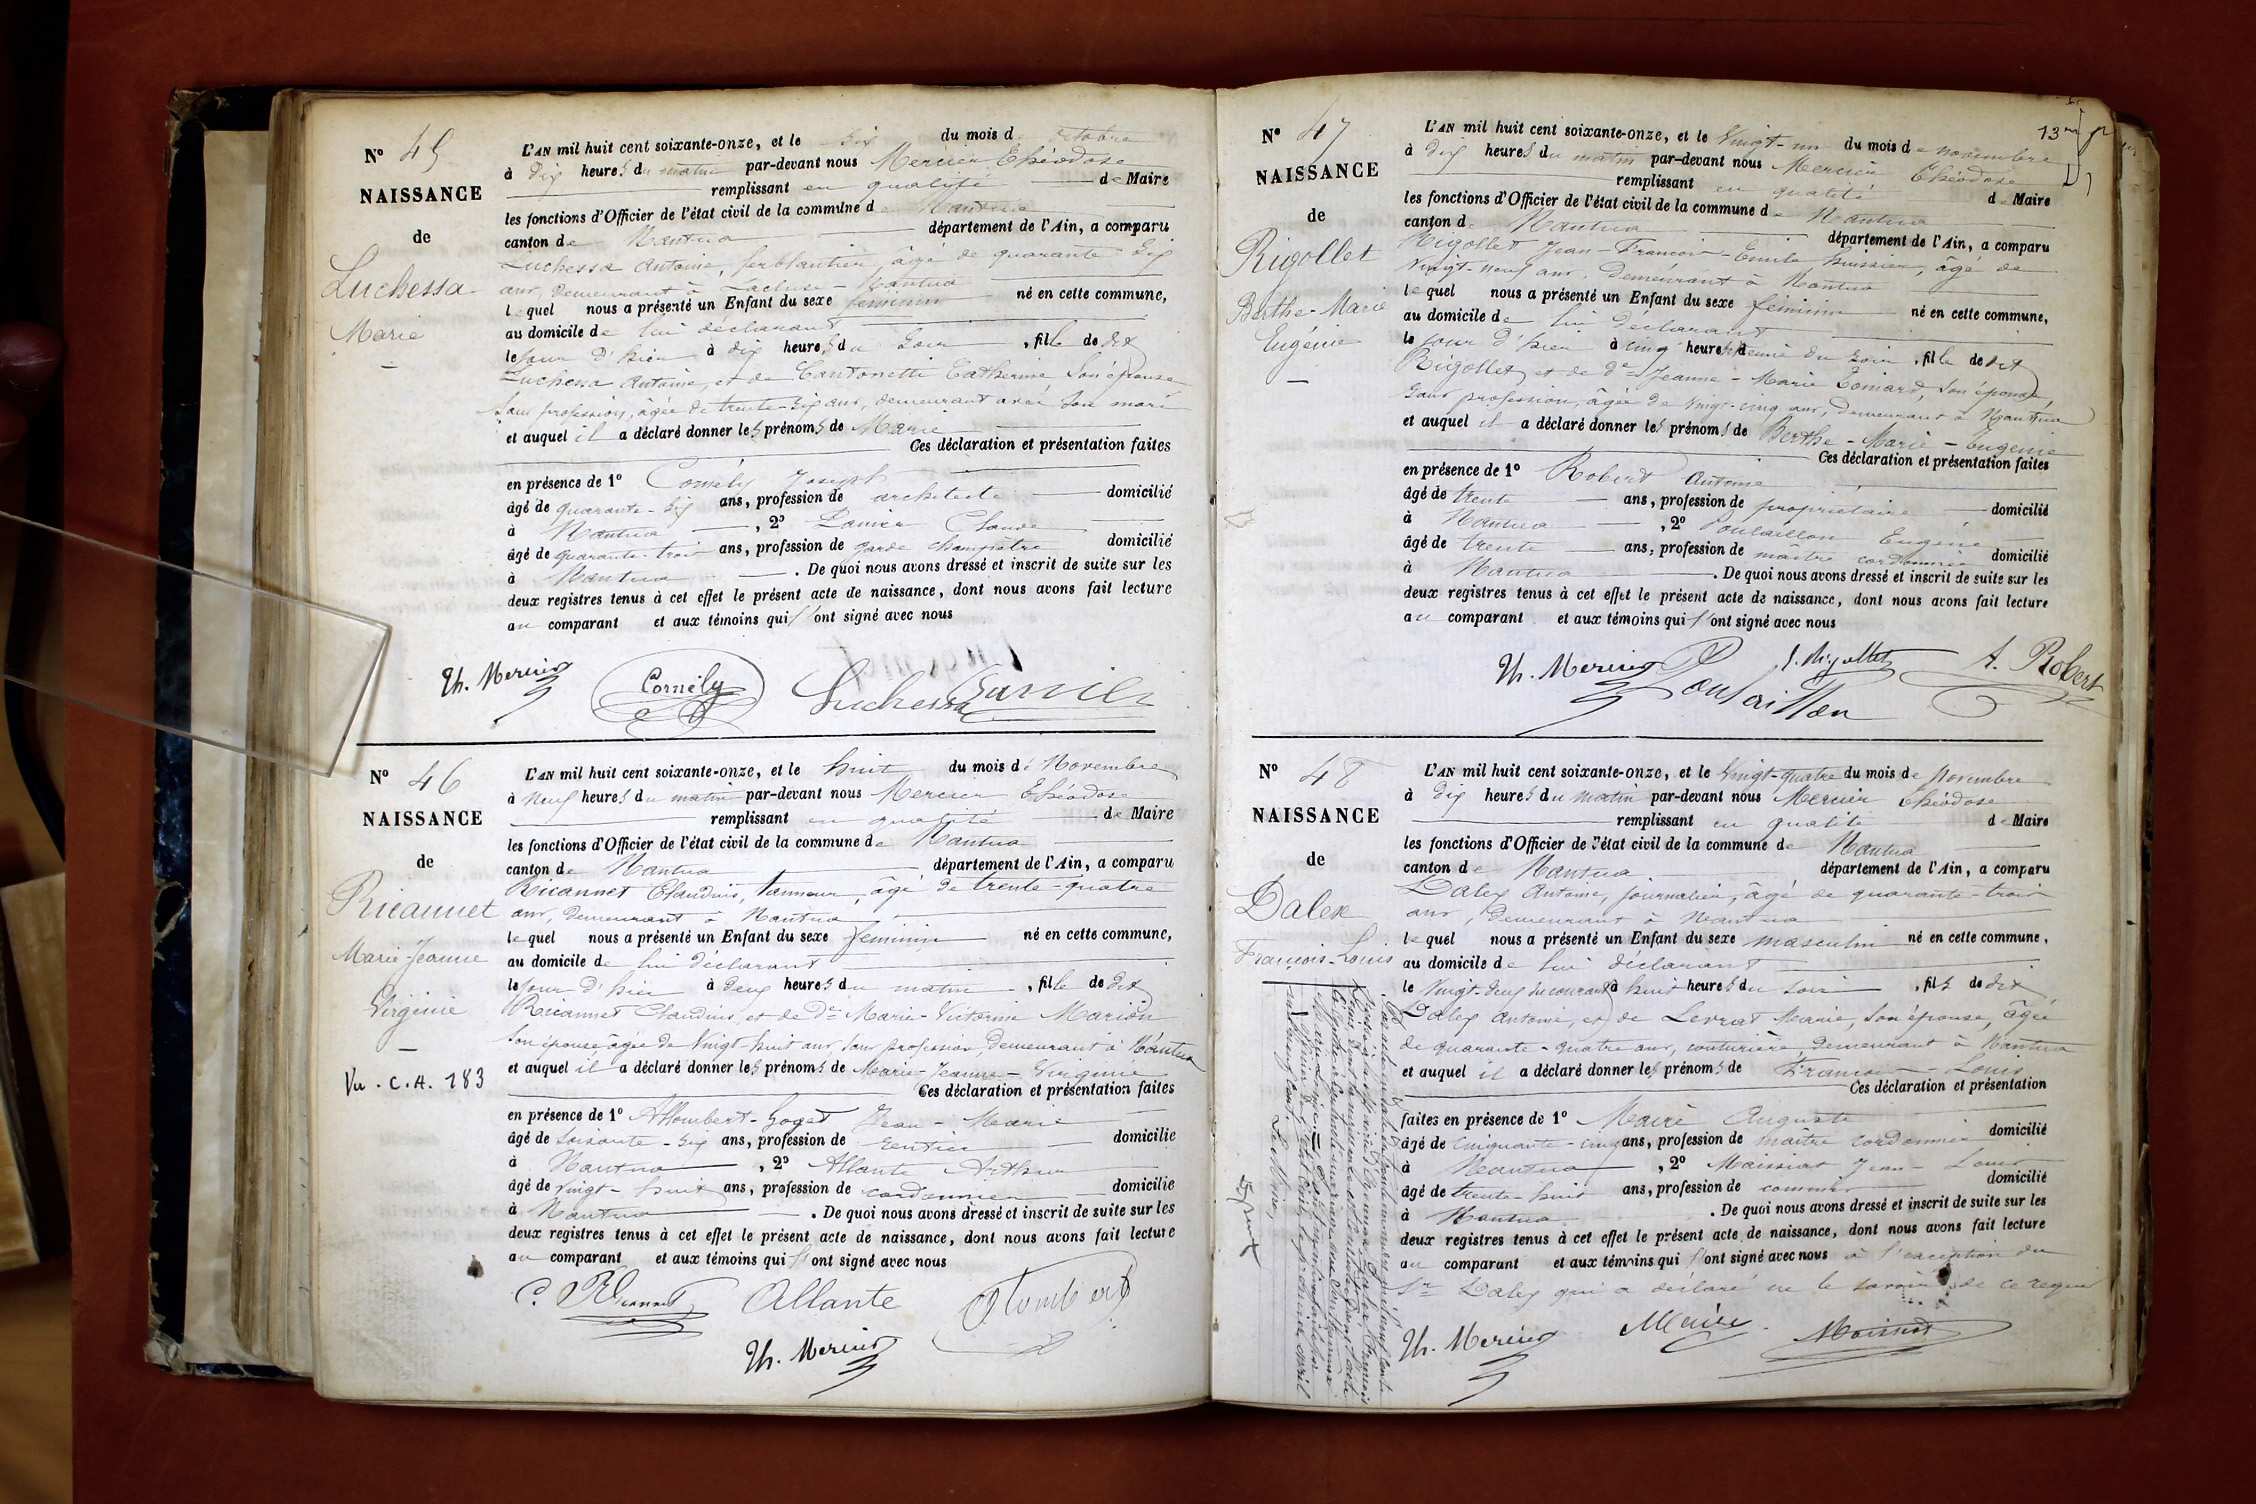 N° 45
NAISSANCE
de
Luchessa
Marie
L'AN mil huit cent soixante-onze, et le dix du mois d'octobre
à dix heures du matin par-devant nous Mercier Théodose
remplissant en qualité de Maire
les fonctions d'Officier de l'état civil de la commune de Nantua
canton de Nantua département de l'Ain, a comparu
Luchessa Antoine, ferblantier, âgé de quarante-six
ans, demeurant à Lacluse-Nantua
lequel nous a présenté un Enfant du sexe féminin né en cette commune,
au domicile de lui déclarant
le jour d'hier à dix heures du soir, fille de dit
Luchessa Antoine, et de Cantonetti Catherine son épouse
sans profession, âgée de trente-six ans, demeurant avec son mari
et auquel il a déclaré donner les prénoms de Marie
Ces déclaration et présentation faites
en présence de 1° Cornély Joseph
âgé de quarante-six ans, profession de architecte domicilié
à Nantua, 2° Claude
âgé de quarante-trois ans, profession de garde champêtre domicilié
à Nantua. De quoi nous avons dressé et inscrit de suite sur les
deux registres tenus à cet effet le présent acte de naissance, dont nous avons fait lecture
au comparant et aux témoins qui l'ont signé avec nous
Th. Mercier Cornély Luchessa
N° 46
NAISSANCE
de
Ricannet
Marie-Jeanne
Virginie
Vu. C.A. 183
L'AN mil huit cent soixante-onze, et le huit du mois de Novembre
à neuf heures du matin par-devant nous Mercier Théodose
remplissant en qualité de Maire
les fonctions d'Officier de l'état civil de la commune de Nantua
canton de Nantua département de l'Ain, a comparu
Ricannet Claudius, tanneur, âgé de trente-quatre
ans, demeurant à Nantua
lequel nous a présenté un Enfant du sexe féminin né en cette commune,
au domicile de lui déclarant
le jour d'hier à deux heures du matin, fille de dit
Ricannet Claudius, et de De Marie-Victorine Marion
son épouse âgée de vingt-huit ans, sans profession, demeurant à Nantua
et auquel il a déclaré donner les prénoms de Marie-Jeanne-Virginie
Ces déclaration et présentation faites
en présence de 1° Allombert-Goget Jean-Marie
âgé de soixante-six ans, profession de rentier domicilié
à Nantua, 2° Allante Arthur
âgé de vingt-huit ans, profession de cordonnier domicilié
à Nantua. De quoi nous avons dressé et inscrit de suite sur les
deux registres tenus à cet effet le présent acte de naissance, dont nous avons fait lecture
au comparant et aux témoins qui l'ont signé avec nous
C. Ricannet Allante Alombert
Th. Mercier
13
N° 47
NAISSANCE
de
Rigollet
Berthe-Marie
Eugénie
L'AN mil huit cent soixante-onze, et le vingt-un du mois de novembre
à dix heures du matin par-devant nous Mercier Théodose
remplissant en qualité de Maire
les fonctions d'Officier de l'état civil de la commune de Nantua
canton de Nantua département de l'Ain, a comparu
Rigollet Jean-François-Emile huissier, âgé de
vingt-neuf ans, demeurant à Nantua
lequel nous a présenté un Enfant du sexe féminin né en cette commune,
au domicile de lui déclarant
le jour d'hier à cinq heures demie du soir, fille de dit
Rigollet, et de De Jeanne-Marie Coinard, son épouse,
sans profession, âgée de vingt-cinq ans, demeurant à Nantua
et auquel il a déclaré donner les prénoms de Berthe-Marie-Eugénie
Ces déclaration et présentation faites
en présence de 1° Robert Antoine
âgé de trente ans, profession de propriétaire domicilié
à Nantua, 2° Poulaillon Eugène
âgé de trente ans, profession de maître cordonnier domicilié
à Nantua. De quoi nous avons dressé et inscrit de suite sur les
deux registres tenus à cet effet le présent acte de naissance, dont nous avons fait lecture
au comparant et aux témoins qui l'ont signé avec nous
Th. Mercier Poulaillon Rigollet A. Robert
N° 48
NAISSANCE
de
Dalex
François-Louis
L'AN mil huit cent soixante-onze, et le vingt-quatre du mois de novembre
à dix heures du matin par-devant nous Mercier Théodose
remplissant en qualité de Maire
les fonctions d'Officier de l'état civil de la commune de Nantua
canton de Nantua département de l'Ain, a comparu
Dalex Antoine, journalier, âgé de quarante-trois
ans, demeurant à Nantua
lequel nous a présenté un Enfant du sexe masculin né en cette commune,
au domicile de lui déclarant
le vingt-deux du courant à huit heures du soir, fils de dit
Dalex Antoine, et de Levrat Marie, son épouse, âgée
de quarante-quatre ans, couturière, demeurant à Nantua
et auquel il a déclaré donner les prénoms de François-Louis
Ces déclaration et présentation
faites en présence de 1° Maire Auguste
âgé de cinquante-cinq ans, profession de maître cordonnier domicilié
à Nantua, 2° Maissiat Jean-Louis
âgé de trente-huit ans, profession de commis domicilié
à Nantua. De quoi nous avons dressé et inscrit de suite sur les
deux registres tenus à cet effet le présent acte de naissance, dont nous avons fait lecture
au comparant et aux témoins qui l'ont signé avec nous à l'exception du
Sr Dalex qui a déclaré ne le savoir de ce requis
Th. Mercier Maire Maissiat